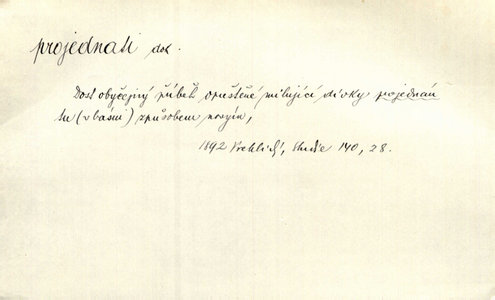 projednati dok.
Dost obyčejný příběh opuštěné milující dívky projednán
tu (v básni) způsobem novým,
1892 Vrchlický, Studie 140, 28.